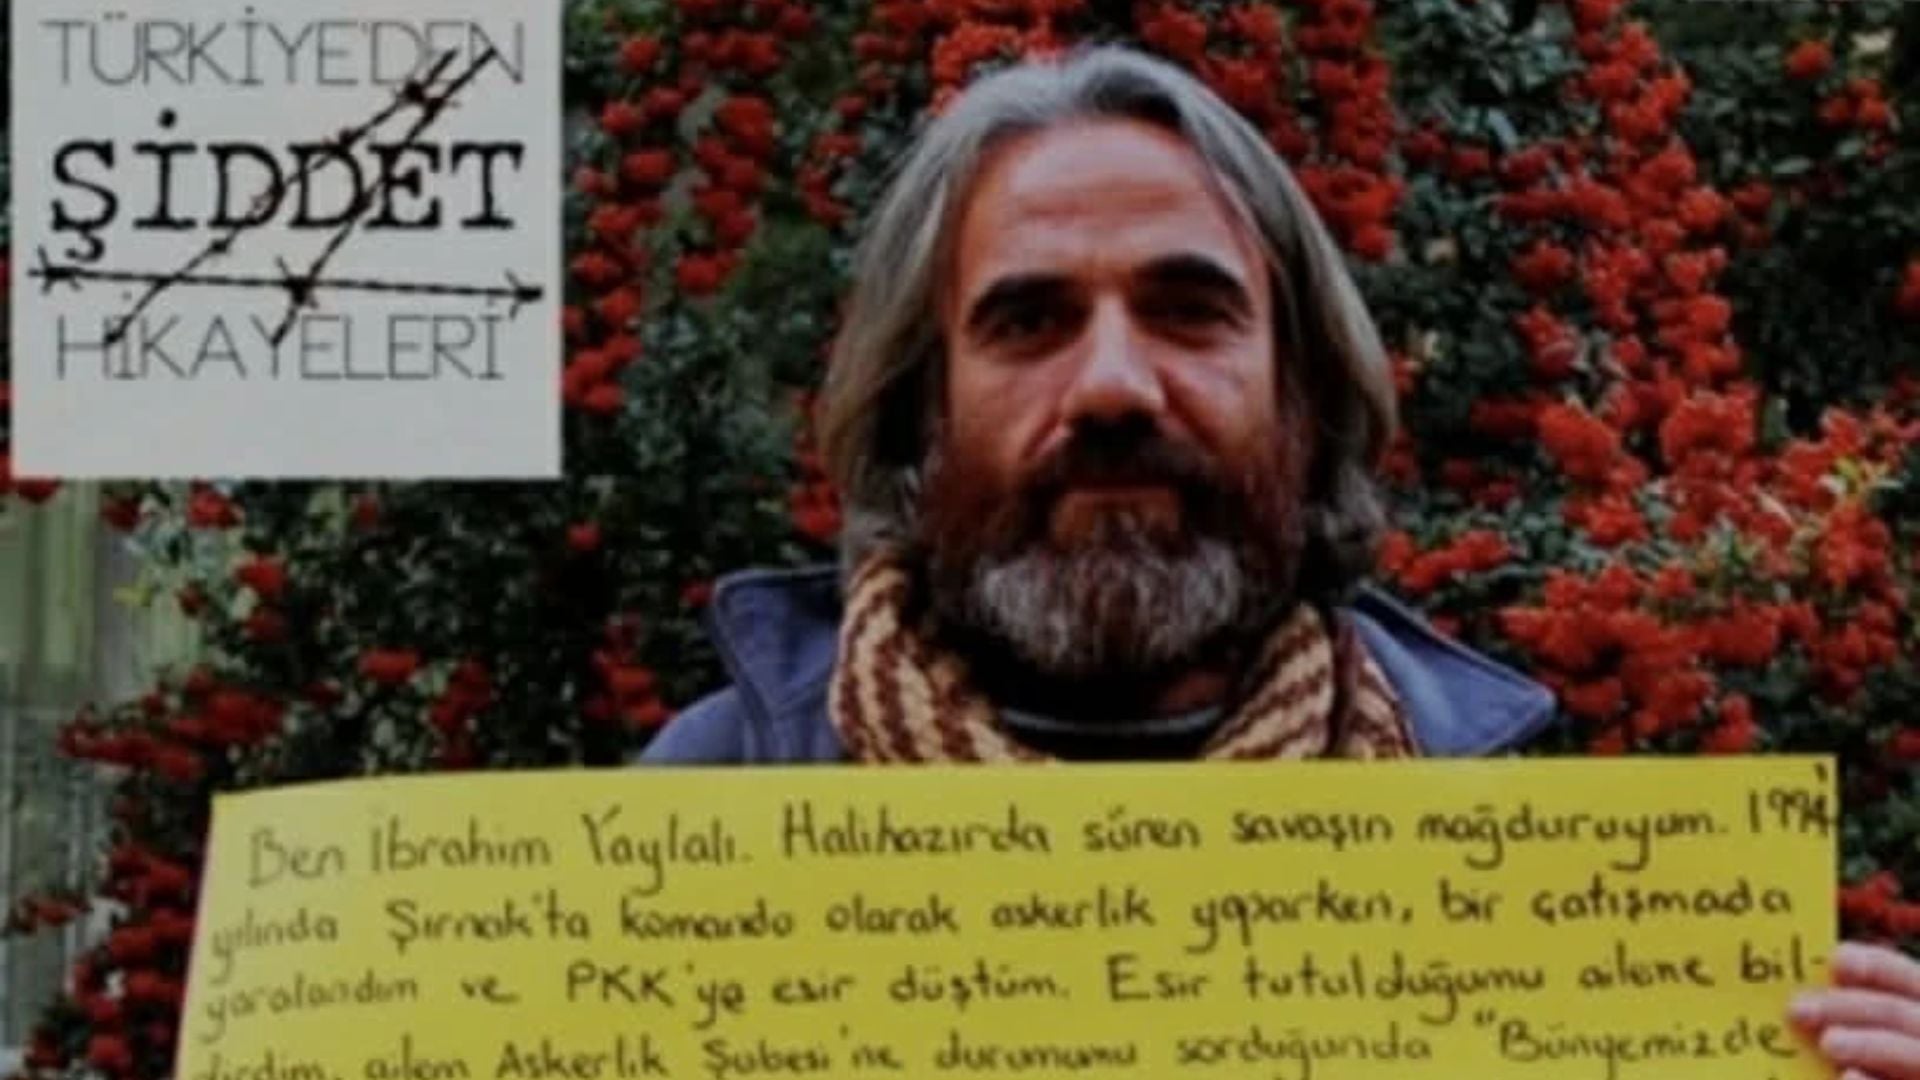 TÜRKİYE'DEN
ŞİDDET
HİKAYELERİ
Ben İbrahim Yaylalı. Halihazırda süren savaşın mağduruyum. 1994
yılında Şırnak'ta komando olarak askerlik yaparken, bir çatışmada
yaralandım ve PKK'ye esir düştüm. Esir tutulduğumu aileme bil-
dirdim, ailem Askerlik Şubesi'ne durumumu sorduğunda "Bünyemizde